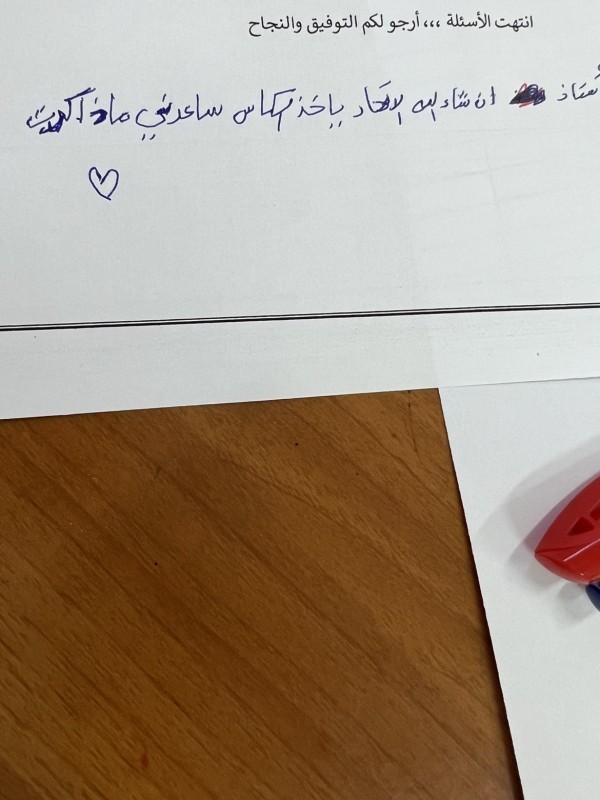 انتهت الأسئلة ،،، أرجو لكم التوفيق والنجاح
أستاذ ان شاء الله الاتحاد ياخذ الكاس ساعدني ماذاكرت